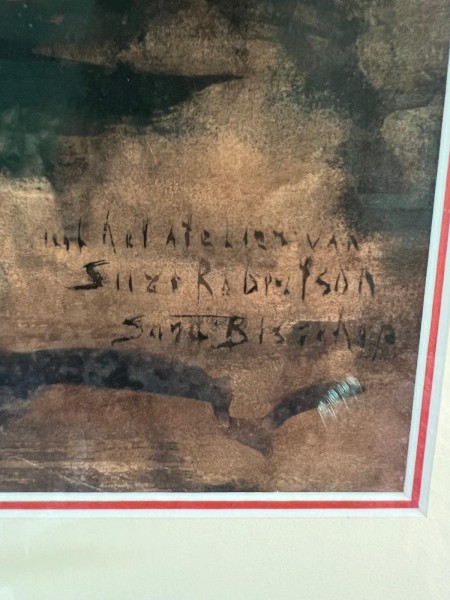 uit het atelier van
Suze Robertson
Sara Bisschop